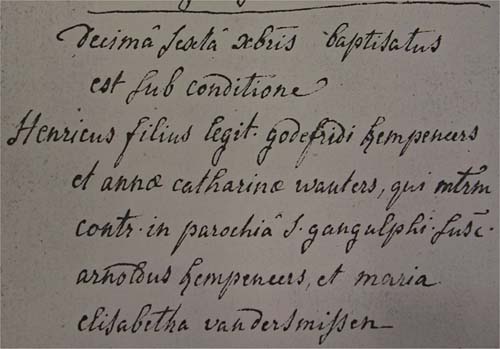 Decimâ sextâ xbris baptisatus
est sub conditione
Henricus filius legit. godefridi hempeneers
et annæ catharinæ wauters, qui mtrm
contr. in parochiâ S. gangulphi. Susc.
arnoldus hempeneers, et maria
elisabetha vandersmissen